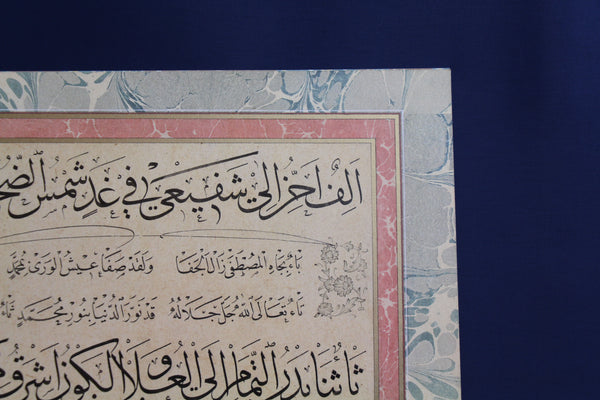 الف اخر الي شفيعي في غدٍ شمس الضح
باء بجاه المصطفى زال الجفا ولقد صفا عيش الورى بمحمد
تاء تعالى الله جل جلاله قد نور الدنيا بنور محمد
ثاء ثنا بدر التمام الى اشرق